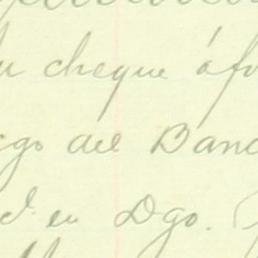 u cheque á fa
go del Banc
d. en Dgo.